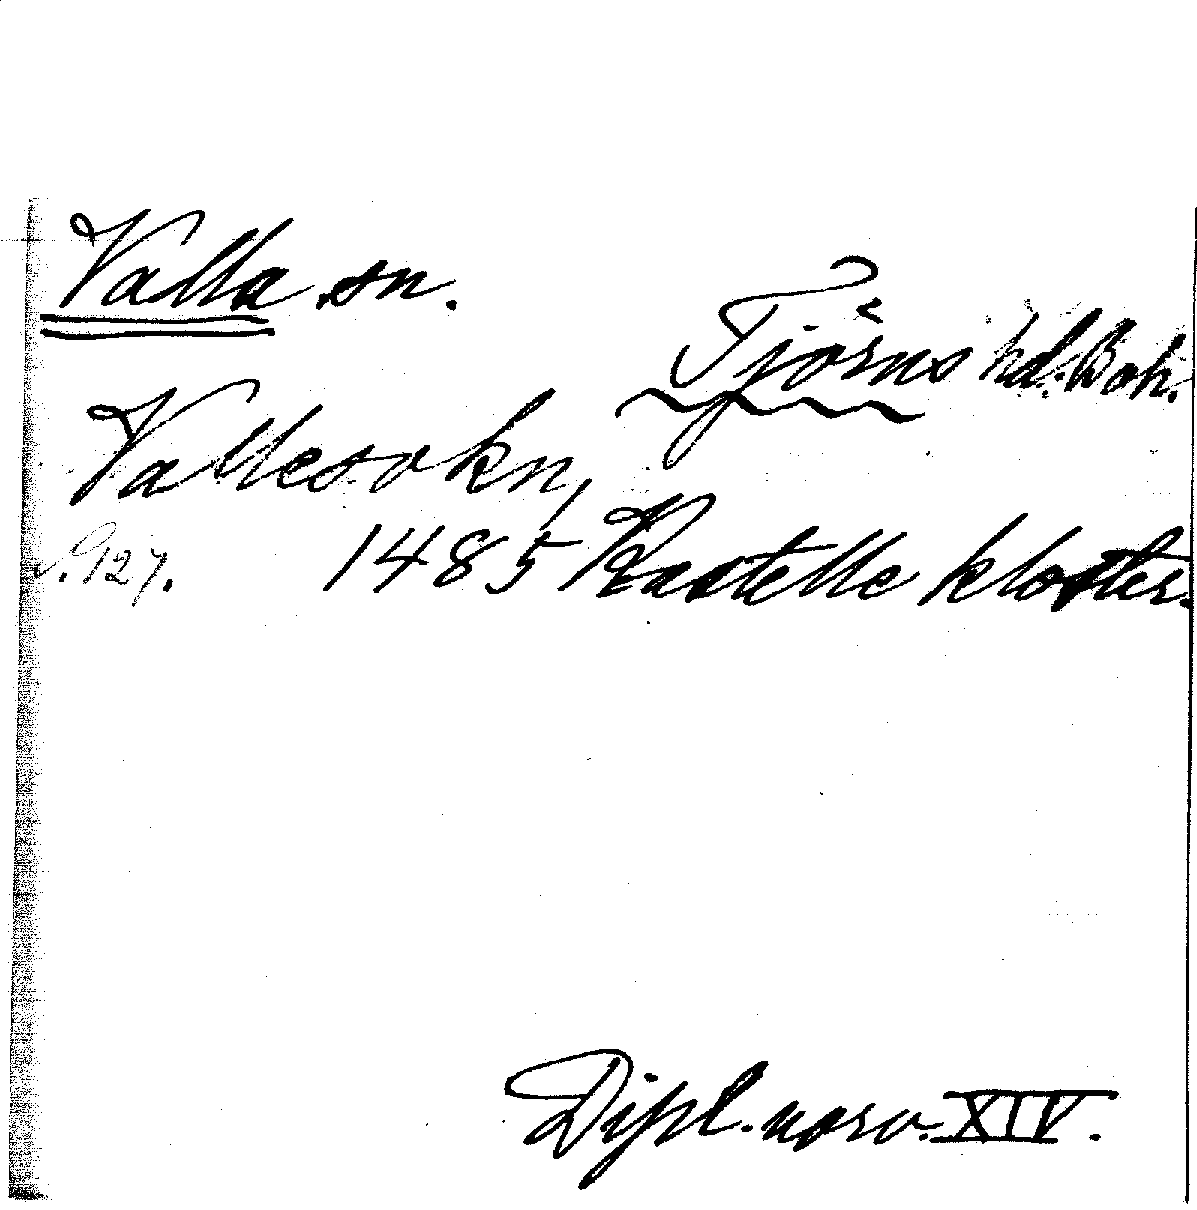 Valla sn.
Tjörns hd. Boh.
Vallesokn,
s. 127. 1485 Kastelle kloster.
Dipl. norv. XIV.